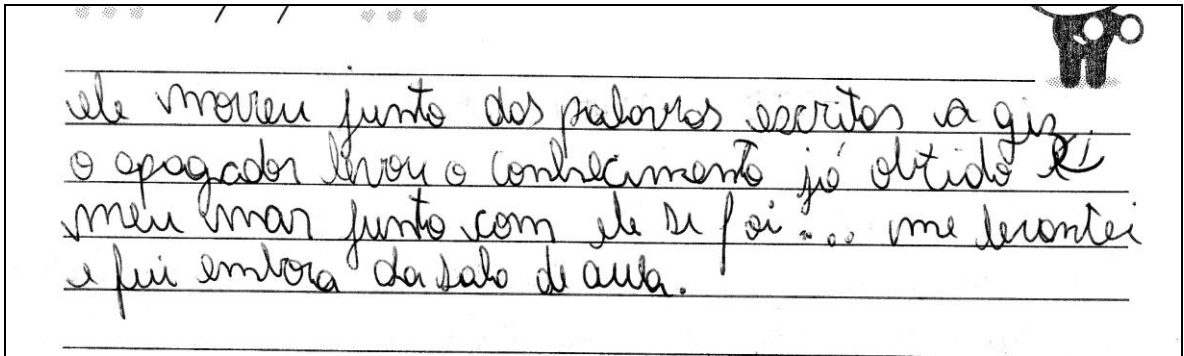 ele morreu junto das palavras escritas a giz,
o apagador levou o conhecimento já obtido e
meu mar junto com ele se foi... me levantei
e fui embora da sala de aula.